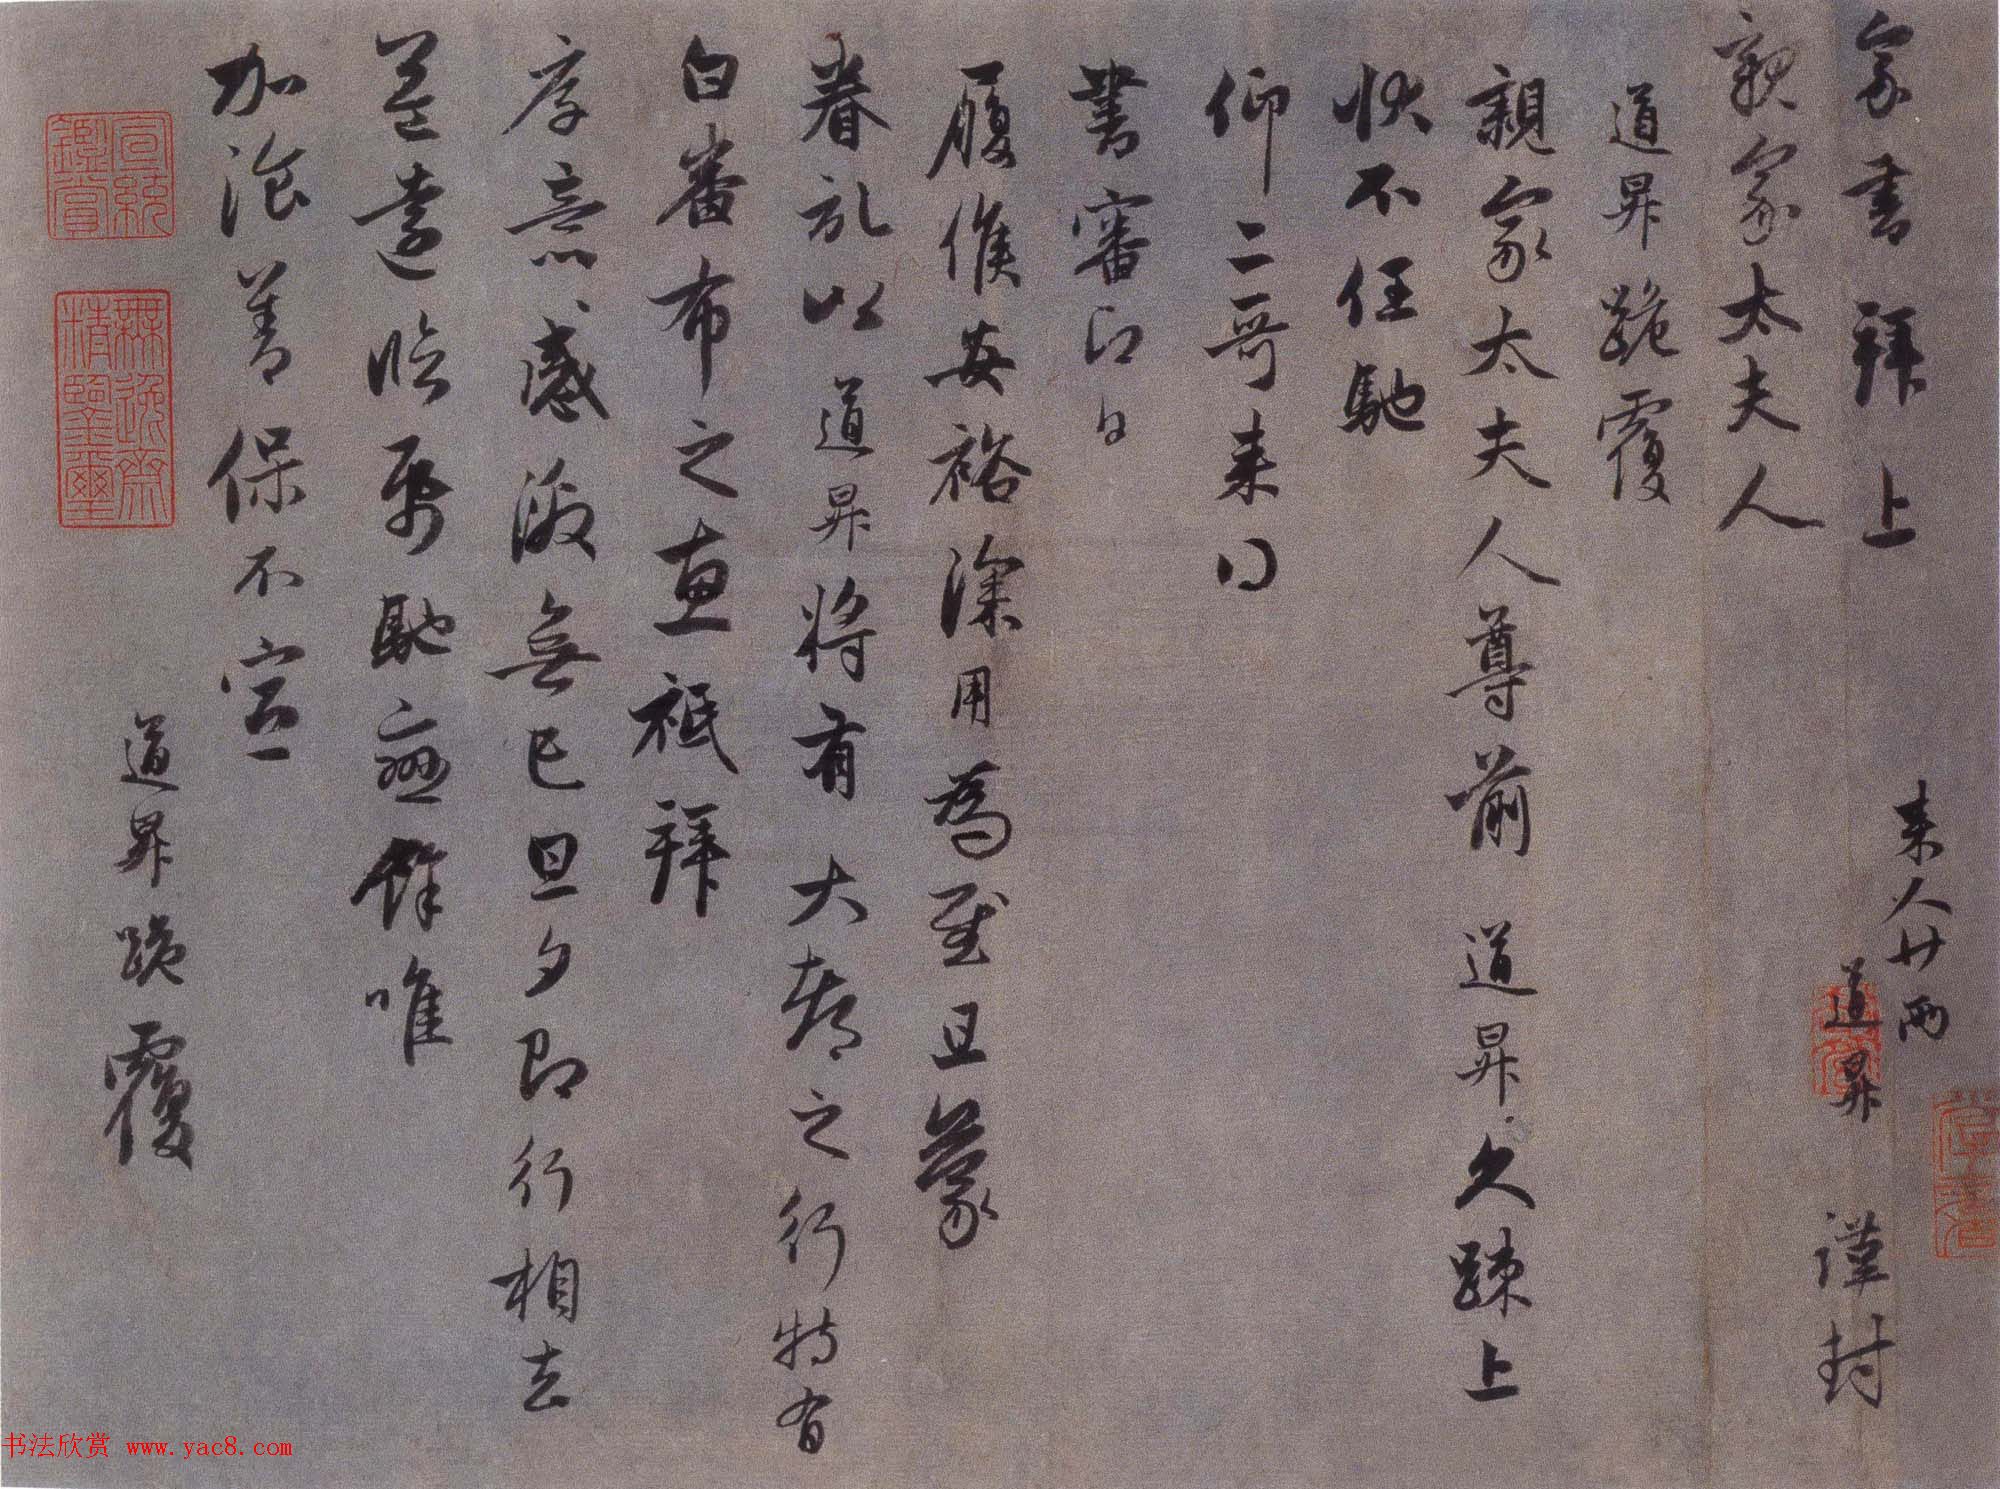 家書拜上
親家太夫人
来人廿兩
道昇 謹封
道昇跪覆
親家太夫人尊前 道昇久疎上
狀不任馳
仰二哥来得
書審即日
履候安裕深用為慰且蒙
眷記以道昇將有大都之行特有
白番布之惠祗拜
厚意感激無已旦夕即行相去
益遠臨風馳戀餘唯
加飡善保不宣
道昇跪覆
宣統鑑賞
無逸齋精鑒璽
书法欣赏 www.yac8.com